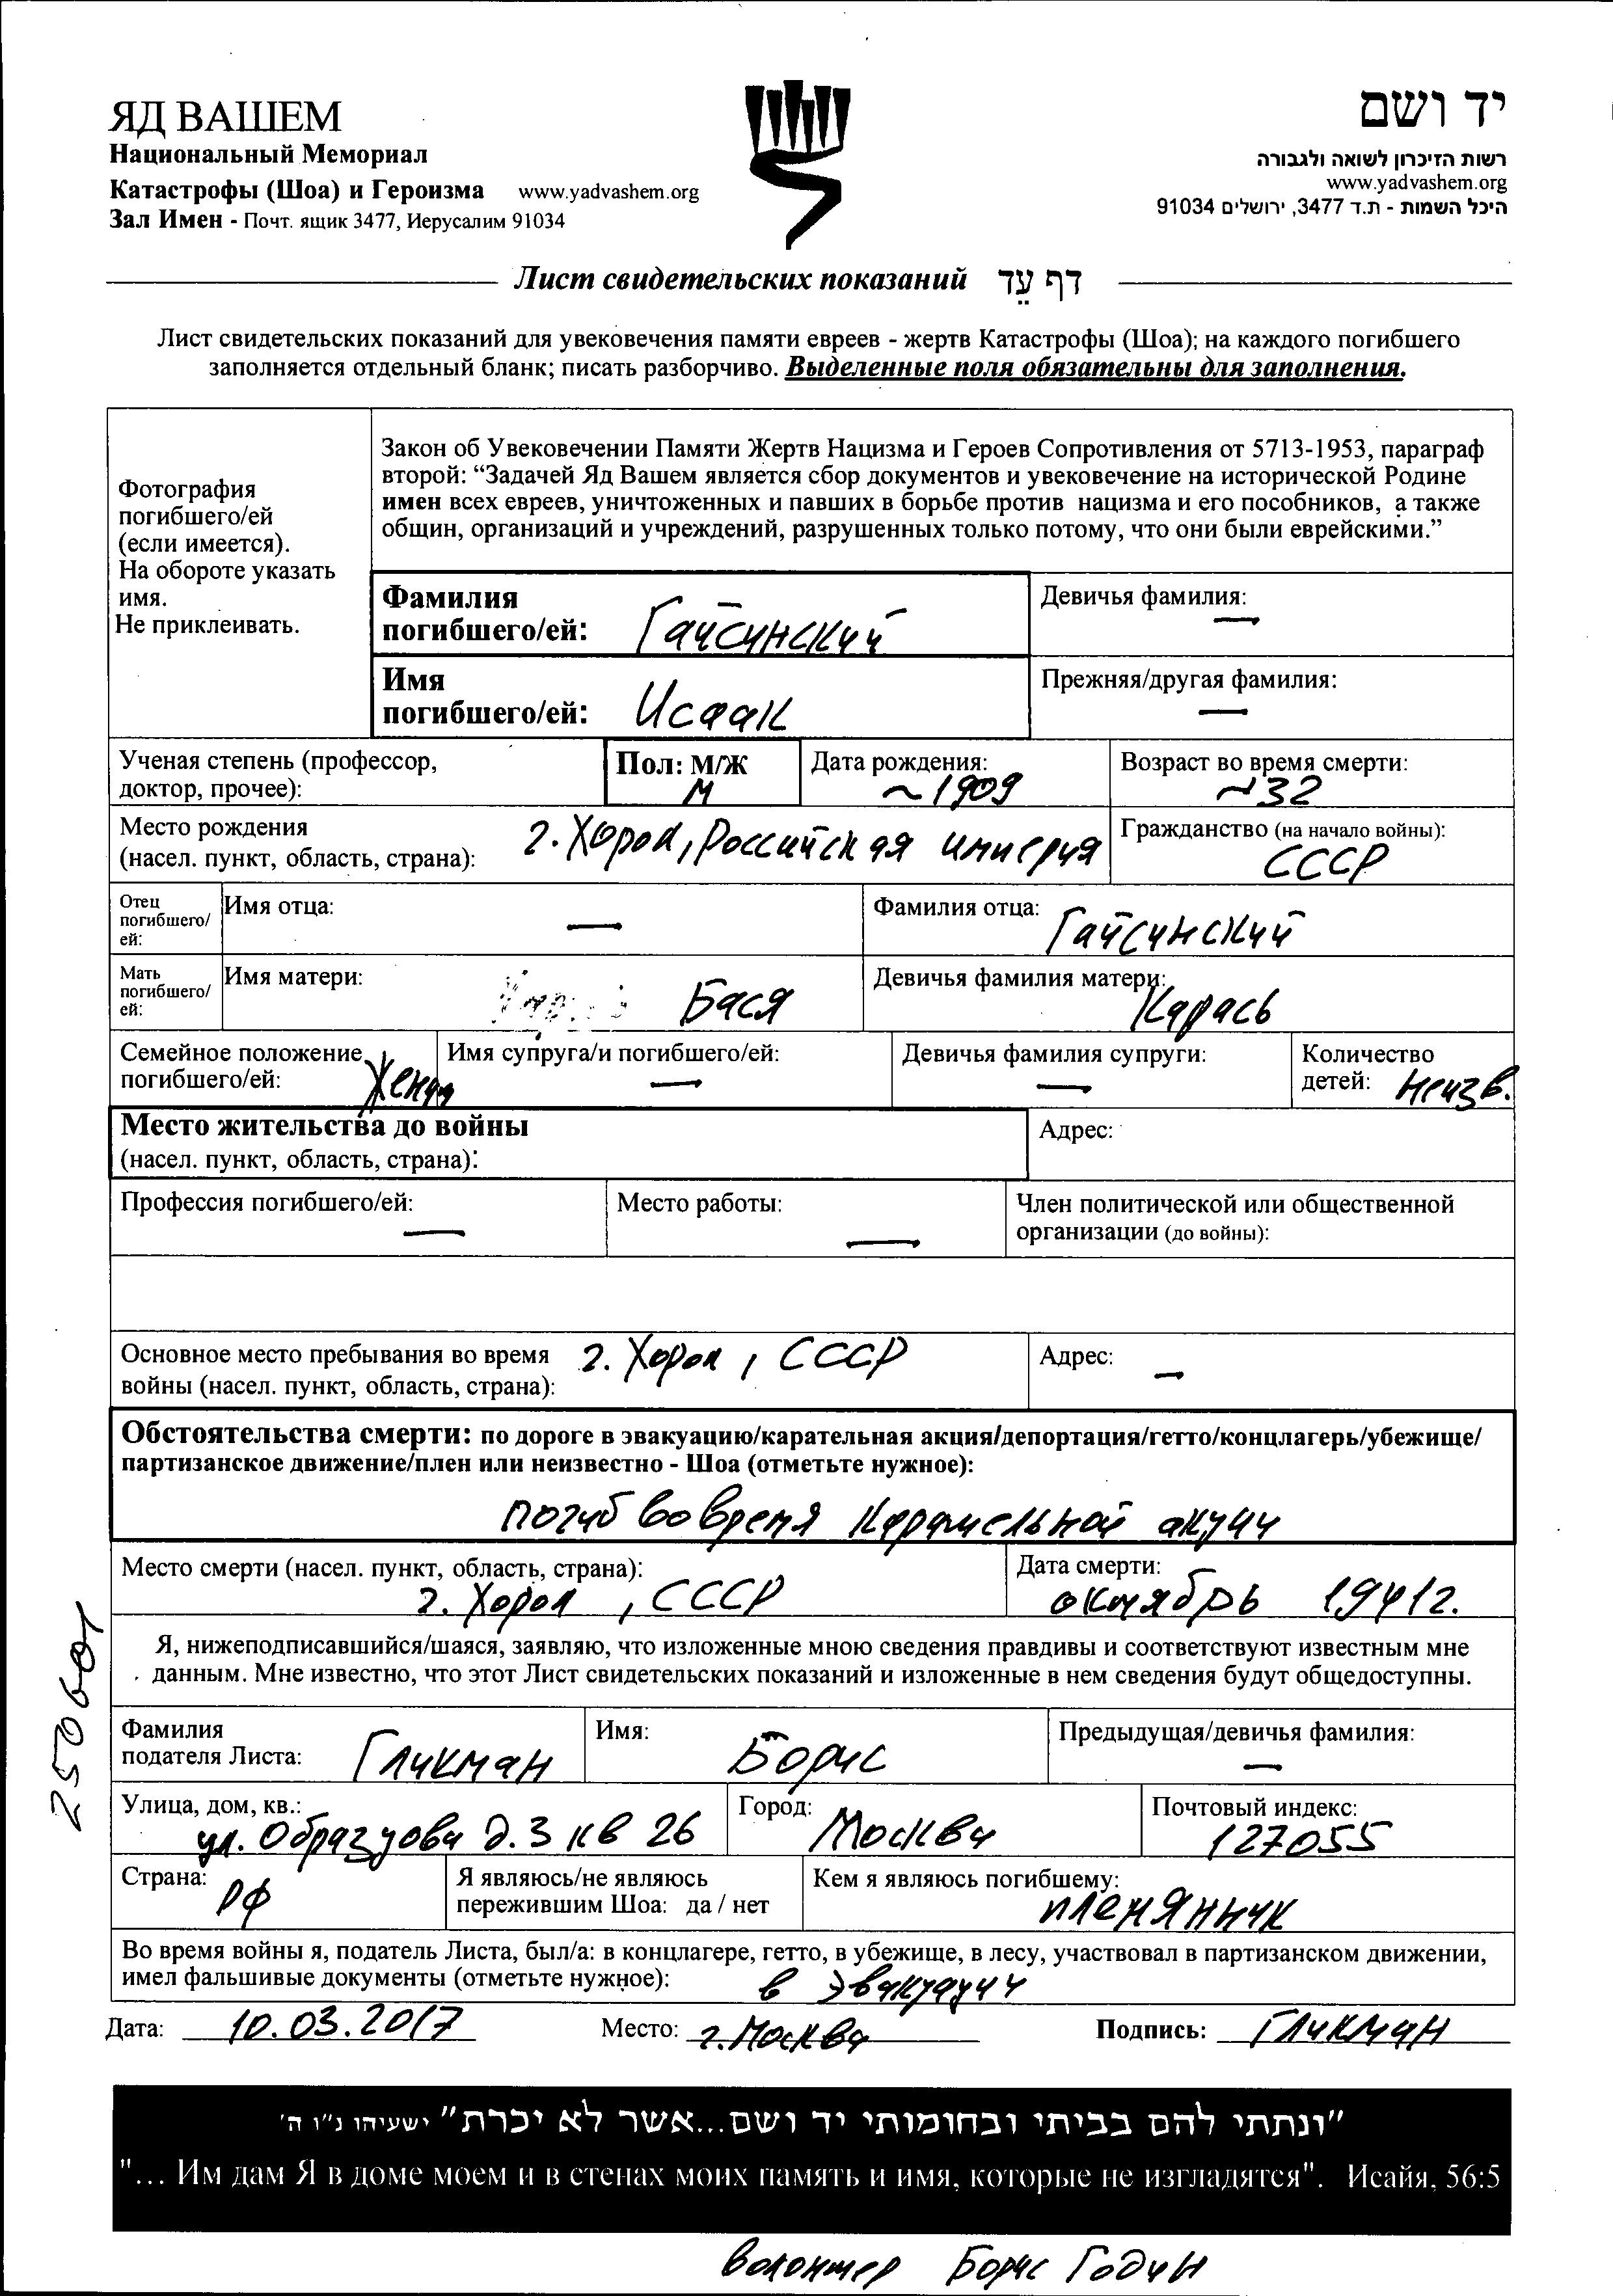 ЯД ВАШЕМ
Национальный Мемориал
Катастрофы (Шоа) и Героизма www.yadvashem.org
Зал Имен - Почт. ящик 3477, Иерусалим 91034
יד ושם
רשות הזיכרון לשואה ולגבורה
www.yadvashem.org
היכל השמות - ת.ד 3477, ירושלים 91034
Лист свидетельских показаний דף עֵד
Лист свидетельских показаний для увековечения памяти евреев - жертв Катастрофы (Шоа); на каждого погибшего
заполняется отдельный бланк; писать разборчиво. Выделенные поля обязательны для заполнения.
Фотография
погибшего/ей
(если имеется).
На обороте указать
имя.
Не приклеивать.
Закон об Увековечении Памяти Жертв Нацизма и Героев Сопротивления от 5713-1953, параграф
второй: “Задачей Яд Вашем является сбор документов и увековечение на исторической Родине
имен всех евреев, уничтоженных и павших в борьбе против нацизма и его пособников, а также
общин, организаций и учреждений, разрушенных только потому, что они были еврейскими.”
Фамилия
погибшего/ей: Гайсинский
Девичья фамилия: —
Имя
погибшего/ей: Исаак
Прежняя/другая фамилия: —
Ученая степень (профессор,
доктор, прочее):
Пол: М/Ж
М
Дата рождения:
~1909
Возраст во время смерти:
~32
Место рождения
(насел. пункт, область, страна): г. Хорол, Российская империя
Гражданство (на начало войны):
СССР
Отец
погибшего/
ей:
Имя отца: —
Фамилия отца: Гайсинский
Мать
погибшего/
ей:
Имя матери: Бася
Девичья фамилия матери: Карась
Семейное положение
погибшего/ей: Женат
Имя супруга/и погибшего/ей: —
Девичья фамилия супруги: —
Количество
детей: неизв.
Место жительства до войны
(насел. пункт, область, страна):
Адрес:
Профессия погибшего/ей: —
Место работы: —
Член политической или общественной
организации (до войны):
Основное место пребывания во время
войны (насел. пункт, область, страна): г. Хорол, СССР
Адрес: —
Обстоятельства смерти: по дороге в эвакуацию/карательная акция/депортация/гетто/концлагерь/убежище/
партизанское движение/плен или неизвестно - Шоа (отметьте нужное):
погиб во время карательной акции
Место смерти (насел. пункт, область, страна):
г. Хорол, СССР
Дата смерти:
октябрь 1941г.
Я, нижеподписавшийся/шаяся, заявляю, что изложенные мною сведения правдивы и соответствуют известным мне
данным. Мне известно, что этот Лист свидетельских показаний и изложенные в нем сведения будут общедоступны.
Фамилия
подателя Листа: Гликман
Имя: Борис
Предыдущая/девичья фамилия: —
Улица, дом, кв.:
ул. Образцова д. 3 кв 26
Город: Москва
Почтовый индекс:
127055
Страна: РФ
Я являюсь/не являюсь
пережившим Шоа: да / нет
Кем я являюсь погибшему:
племянник
Во время войны я, податель Листа, был/а: в концлагере, гетто, в убежище, в лесу, участвовал в партизанском движении,
имел фальшивые документы (отметьте нужное): в эвакуации
Дата: 10.03.2017 Место: г. Москва Подпись: Гликман
"ונתתי להם בביתי ובחומותי יד ושם...אשר לא יכרת" ישעיהו נ"ו ה'
"... Им дам Я в доме моем и в стенах моих память и имя, которые не изгладятся". Исайя, 56:5
волонтер Борис Годин